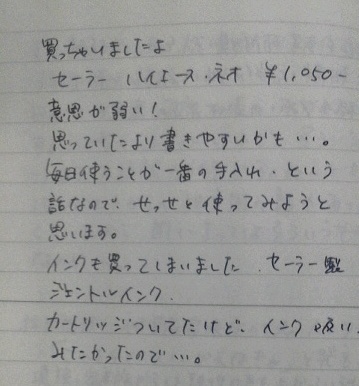 買っちゃいましたよ
セーラー ハイエース・ネオ ¥1,050-
意思が弱い!
思っていたより書きやすいかも…。
毎日使うことが一番の手入れ、という
話なので、せっせと使ってみようと
思います。
インクも買ってしまいました。セーラー製
ジェントルインク.
カートリッジついてたけど、インク吸い
みたかったので…。